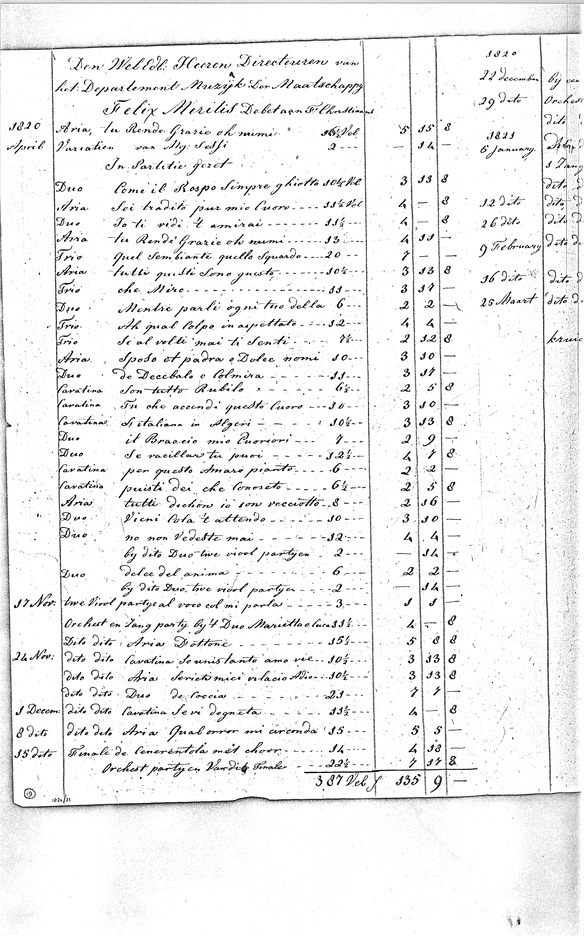 Den WelEdl: Heeren Directeuren van
het Departement Muzÿk der Maatschappÿ
Felix Meritis Debet aan F Christiani
1820 Aria, tu Rende Grazie oh numi 16½ Vel 5 15 8
April Variatien van Sig. Sessi 2 — — 14 —
In Partitie gezet
Duo Come il Rospo Simpre ghiotto 10½ Vel 3 13 8
Aria Sei tradito pur mio Cuoro 11½ Vel 4 — 8
Duo Io ti vidi 't amirai 11½ 4 — 8
Aria tu Rende Grazie oh numi 13 4 11 —
Trio Quel Sembiante quello Sguardo 20 7 — —
Aria tutti quisti Sono questo 10½ 3 13 8
Trio che Miro 11 3 17 —
Duo Mentre parli ogni tuo della 6 2 2 —
Trio Ah qual Colpo in aspettato 12 4 4 —
Trio Se al volti mai ti Senti 7½ 2 12 8
Aria Sposo et padra e Dolce nomi 10 3 10 —
Duo de Decebalo e Colmira 11 3 17 —
Cavatina Son tutto Rubilo 6½ 2 5 8
Cavatina Tu che accendi questo Cuoro 10 3 10 —
Cavatina Italiana in Algeri 10½ 3 13 8
Duo il Braccio mio Cuoriori 7 2 9 —
Duo Se vacillar tu puoi 12½ 4 7 8
Cavatina per questo Amaro pianto 6 2 2 —
Cavatina puisti dei che Conoseto 6½ 2 5 8
Aria tutti dichon io son vecciotto 8 2 16 —
Duo Vieni Cola 't attendo 10 3 10 —
Duo no non Vedeste mai 12 4 4 —
by dito Duo twe viool partyen 2 — 14 —
Duo delce del anima 6 2 2
by dito Duo, twe viool partyen 2 — 14 —
17 Nov: twe Viool partyen al voco col mi parla 3 1 1 —
Orchest en Zang party by 't Duo Marietta e Cara 11½ 4 — 8
Dito dito: Aria D'ottone 15½ 5 8 8
24 Nov: dito dito Cavatina So unistanto amo vie 10½ 3 13 8
dito dito Aria 10½ 3 13 8
dito dito Duo de Coccia 21 7 7 —
1 Decem: dito dito Cavatina Se vi degneta 11½ 4 — 8
8 dito dito dito Aria Qual orror mi circonda 15 5 5 —
15 dito Finale de Cenerentola mét choor 14 4 18 —
Orchest partyen Van dito Finale 22½ 7 17 8
387 Vel ƒ 135 9 —
19
1820/21
1820
22 december by
29 dito Orchest
dito
1821
5 January
1 Zang
dito
12 dito dito
26 dito dito
9 February dito
16 dito dito
25 Maart dito